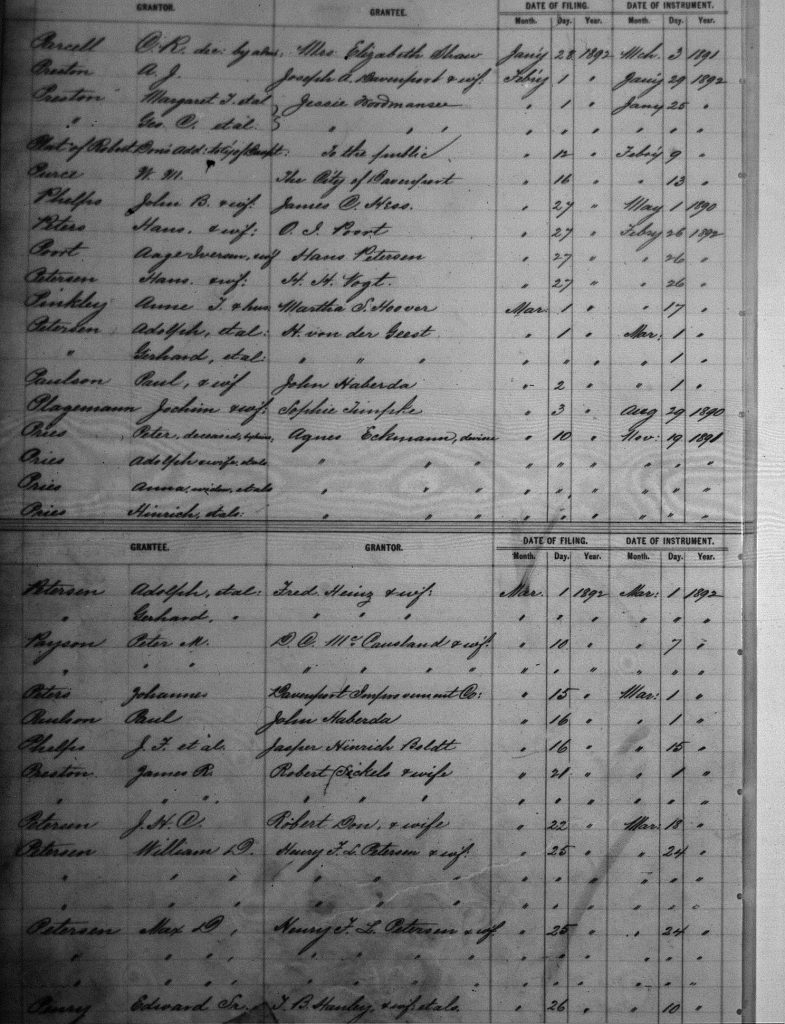 GRANTOR. GRANTEE. DATE OF FILING. DATE OF INSTRUMENT.
Month. Day. Year. Month. Day. Year.
Purcell C. R. dec: by Mrs. Elizabeth Shaw Jan'y 28 1892 Mch. 3 1891
Preston A. J. Joseph A. Davenport & wif. Feb'y 1 " Jan'y 29 1892
Preston Margaret T. et al } Jessie " 1 " Jany 25 "
" Geo. C. et al. } " " " " " " " " "
Plat of Robert Don's Add: to City of Davpt. To the public " 12 " Feb'y 9 "
Pierce W. M. The City of Davenport " 16 " " 13 "
Phelps John B. & wif. James C. Hess. " 27 " May 1 1890
Peters Hans. & wif: O. I. Poort " 27 " Feby 26 1892
Poort Aage Iversen, wif Hans Petersen " 27 " " 26 "
Petersen Hans. & wif: H. H. Vogt. " 27 " " 26 "
Pinkley Anne T. & hus. Martha S. Hoover Mar. 1 " " 17 "
Petersen Adolph, et al: H. von der Geest " 1 " Mar: 1 "
" Gerhard, et al: " " " " " " " 1 "
Paulson Paul, & wif John Haberda " 2 " " 1 "
Plagemann Jochim & wif: Sophie Timpke " 3 " Aug 29 1890
Pries Peter, deceased, Agnes Eckmann, " 10 " Nov: 19 1891
Pries Adolph & wife, et als " " " " " " " " "
Pries Anna, widow, et als " " " " " " " " "
Pries Hinrich, et als: " " " " " " " " "
GRANTEE. GRANTOR. DATE OF FILING. DATE OF INSTRUMENT.
Month. Day. Year. Month. Day. Year.
Petersen Adolph, et al: Fred. Heinz & wif: Mar. 1 1892 Mar: 1 1892
" Gerhard, " " " " " " " " " "
Payson Peter M. D. C. McCausland & wif. " 10 " " 7 "
" " " " " " " " " " " " "
Peters Johannes Davenport Improvement Co: " 15 " Mar: 1 "
Paulson Paul John Haberda " 16 " " 1 "
Phelps J. F. et al. Jasper Hinrich Boldt " 16 " " 15 "
Preston James R. Robert Sickels & wife " 21 " " 1 "
" " " " " " " " " " " "
Petersen J. H. C. Robert Don, & wife " 22 " Mar: 18 "
Petersen William D. Henry F. L. Petersen & wif. " 25 " " 24 "
" " " " " " " " " " " "
" " " " " " " " " " " "
Petersen Max D. " Henry F. L. Petersen & wif " 25 " " 24 "
" " " " " " " " " " " "
" " " " " " " " " " " "
Penry Edward Sr. T. B. Hanley, & wif: et als. " 26 " " 10 "